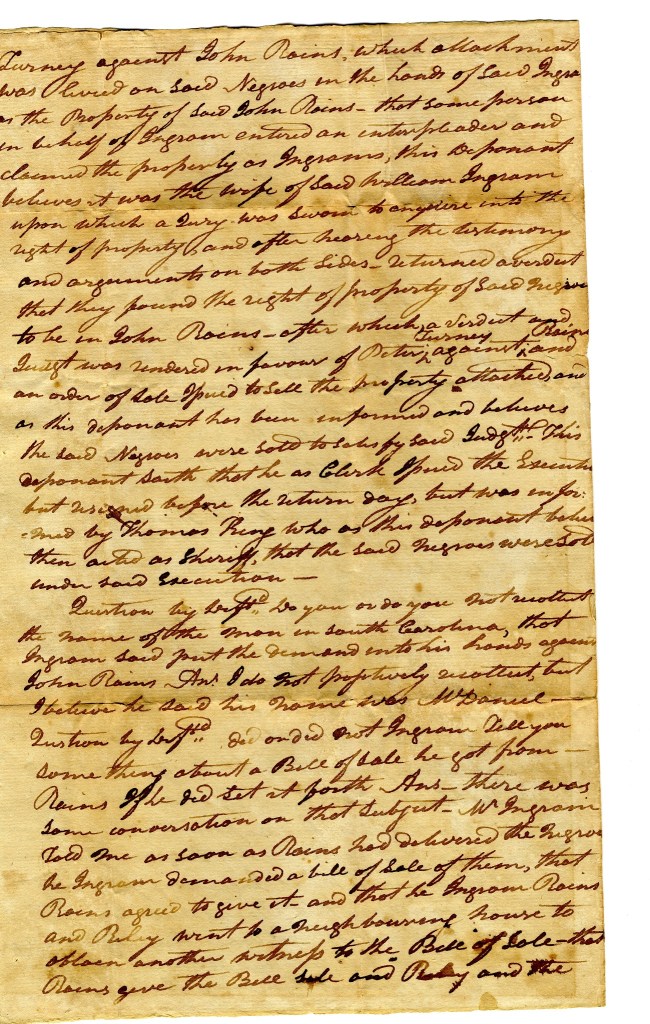 Turney against John Rains, which attachment
was levied on said Negroes in the hands of said Ingra
as the Property of said John Rains - that some person
in behalf of Ingram entered an interpleader and
claimed the property as Ingrams, this Deponant
believes it was the wife of said William Ingram
upon which a Jury was sworn to enquiere into the
right of property, and after hearing the testimony
and arguments on both sides - returned a verdict
that they found the right of property of said Negroe
to be in John Rains - after which, a verdict and
Judgt was rendered in favour of Peter Turney against Rains and
an order of sale Issued to sell the property attached, and
as this deponant has been informed and believes
the said Negroes were sold to satisfy said Judgt. This
deponant saith that he as Clerk Issued the Executi
but resigned before the return day, but was infor-
-med by Thomas King who as this deponant belie
then acted as Sheriff, that the said Negroes were sol
under said Execution -
Question by Deftd. Do you or do you not recollect
the name of the man in South Carolina, that
Ingram said put the demand into his hands against
John Rains Ans. I do not positively recollect, but
I believe he said his name was McDaniel -
Qustion by Deftd. did or did not Ingram Tell you
something about a Bill of sale he got from -
Rains If he did set it forth Ans - there was
some conversation on that subject - Mr Ingram
Told me as soon as Rains had delivered the Negroe
he Ingram demanded a bill of sale of them, that
Rains agreed to give it and that he Ingram Rains
and Riley went to a neighbouring house to
obtain another witness to the Bill of Sale - that
Rains give the Bill sale and Riley and the